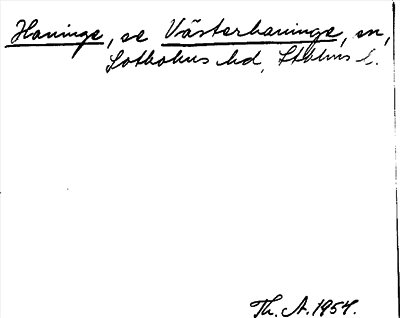 Haninge, se Västerhaninge, sn,
Sotholms hd, Sthlms l.
Th. A. 1954.